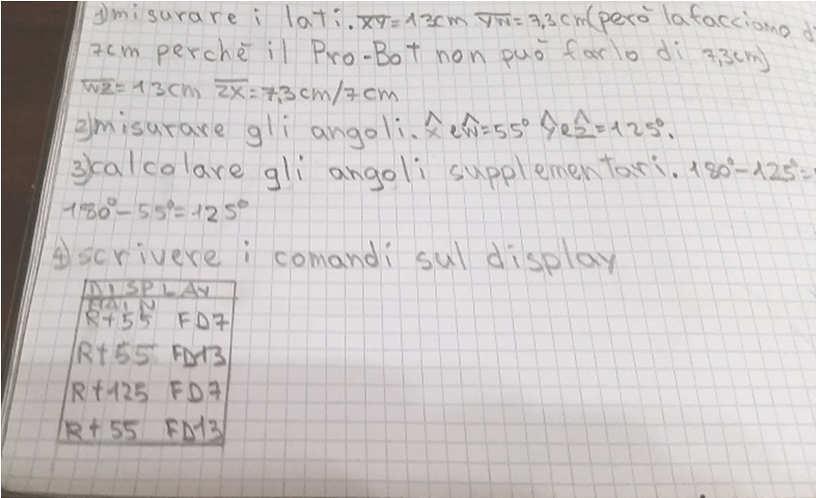 1)misurare i lati. XY=13cm YW=7,3cm(però la facciamo di
7cm perchè il Pro-Bot non può farlo di 7,3cm)
WZ=13cm ZX=7,3cm/7cm
2)misurare gli angoli. X̂ e Ŵ=55° Ŷ e Ẑ=125°.
3)calcolare gli angoli supplementari. 180°-125°=
180°-55°=125°
4)scrivere i comandi sul display
DISPLAY
MAIN
Rt55 FD7
Rt55 FD13
Rt125 FD7
Rt55 FD13